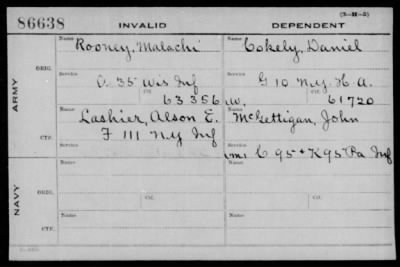 (3-M-5)
86638 INVALID DEPENDENT
Name Rooney, Malachi Name Cokely, Daniel
ORIG. Service D. 35 Wis Inf Service G 10 N.Y. H A.
Ctf. 63356 W. Ctf. 61720
ARMY
Name Lashier, Alson E. Name McGettigan, John
CTF. F 111 N.Y Inf Service C 95 + K 95 Pa Inf
Name Name
ORIG. Service Service
Ctf. Ctf.
NAVY
Name Name
CTF. Service Service